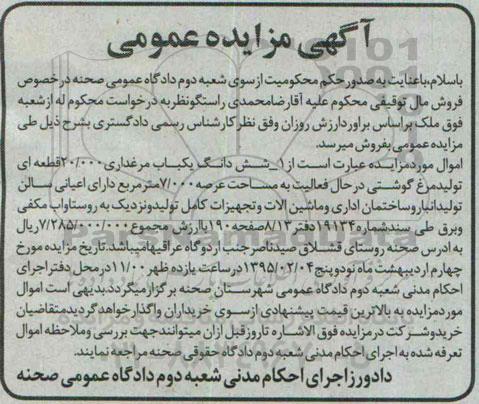 آگهی مزایده عمومی
باسلام،باعنایت به صدور حکم محکومیت ازسوی شعبه دوم دادگاه عمومی صحنه درخصوص
فروش مال توقیفی محکوم علیه آقارضامحمدی راستگونظربه درخواست محکوم له ازشعبه
فوق ملک براساس براوردارزش روزان وفق نظرکارشناس رسمی دادگستری بشرح ذیل طی
مزایده عمومی بفروش میرسد.
اموال موردمزایده عبارت است از ۱_شش دانگ یکباب مرغداری۲۰/۰۰۰قطعه ای
تولیدمرغ گوشتی درحال فعالیت به مساحت عرصه۷/۰۰۰مترمربع دارای اعیانی سالن
تولیدانباروساختمان اداری وماشین الات وتجهیزات کامل تولیدونزدیک به روستاواب مکفی
وبرق طی سندشماره۱۹۱۳۴دفتر۸/۱۳صفحه۱۹۰باارزش مجموع۷/۲۸۵/۰۰۰/۰۰۰ریال
به ادرس صحنه روستای قشلاق صیدناصرجنب اردوگاه عراقیهامیباشد.تاریخ مزایده مورخ
چهارم اردیبهشت ماه نودوپنج۱۳۹۵/۰۲/۰۴درساعت یازده ظهر۱۱/۰۰درمحل دفتراجرای
احکام مدنی شعبه دوم دادگاه عمومی شهرستان صحنه برگزارمیگرددبدیهی است اموال
موردمزایده به بالاترین قیمت پیشنهادی ازسوی خریداران واگذارخواهدگردیدمتقاضیان
خریدوشرکت درمزایده فوق الاشاره تاروزقبل ازان میتوانندجهت بررسی وملاحظه اموال
تعرفه شده به اجرای احکام مدنی شعبه دوم دادگاه حقوقی صحنه مراجعه نمایند.
دادورزاجرای احکام مدنی شعبه دوم دادگاه عمومی صحنه